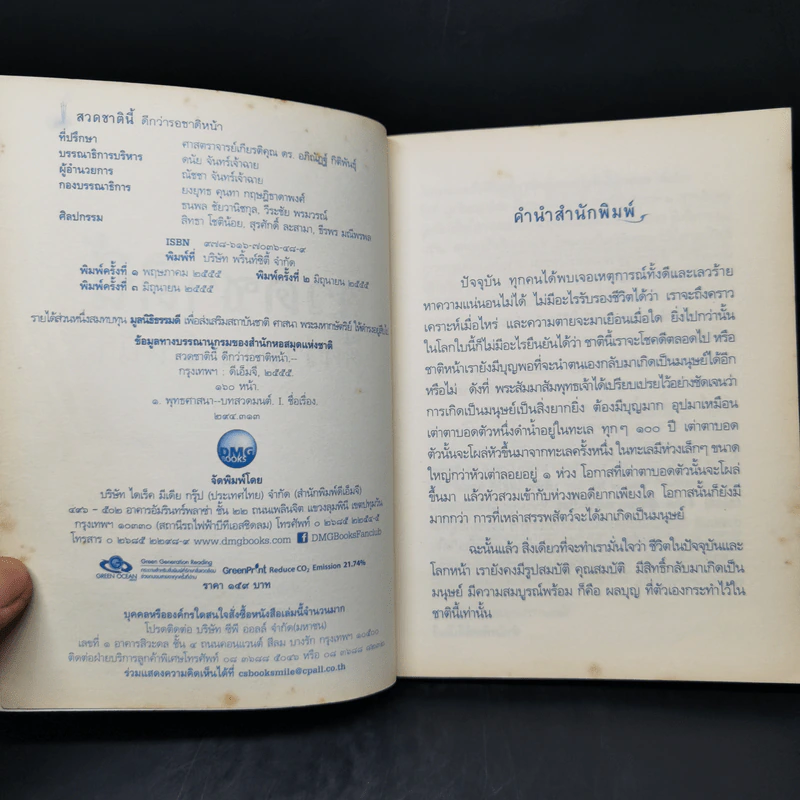 สวดชาตินี้ ดีกว่ารอชาติหน้า
ที่ปรึกษา ศาสตราจารย์เกียรติคุณ ดร. อภิณัฏฐ์ กิติพันธุ์
บรรณาธิการบริหาร ดนัย จันทร์เจ้าฉาย
ผู้อำนวยการ ณัชชา จันทร์เจ้าฉาย
กองบรรณาธิการ ยงยุทธ คุนทา กฤษฎิ์ธาดาพงศ์
ธนพล ชัยวานิชกุล, วีระชัย พรมวรณ์
ศิลปกรรม สิทธา โชติน้อย, สุรศักดิ์ ละสามา, ธีรพร มณีพรพล
ISBN ๙๗๘-๖๑๖-๗๐๓๖-๔๘-๙
พิมพ์ที่ บริษัท พริ้นท์ซิตี้ จำกัด
พิมพ์ครั้งที่ ๑ พฤษภาคม ๒๕๕๕ พิมพ์ครั้งที่ ๒ มิถุนายน ๒๕๕๕
พิมพ์ครั้งที่ ๓ มิถุนายน ๒๕๕๕
รายได้ส่วนหนึ่งสมทบทุน มูลนิธิธรรมดี เพื่อส่งเสริมสถาบันชาติ ศาสนา พระมหากษัตริย์ ให้ดำรงอยู่สืบไป
ข้อมูลทางบรรณานุกรมของสำนักหอสมุดแห่งชาติ
สวดชาตินี้ ดีกว่ารอชาติหน้า.–
กรุงเทพฯ : ดีเอ็มจี, ๒๕๕๕.
๑๖๐ หน้า.
๑. พุทธศาสนา–บทสวดมนต์. I. ชื่อเรื่อง.
๒๙๔.๓๑๓
DMG
BOOKS
จัดพิมพ์โดย
บริษัท ไดเร็ค มีเดีย กรุ๊ป (ประเทศไทย) จำกัด (สำนักพิมพ์ดีเอ็มจี)
๔๙๖ – ๕๐๒ อาคารอัมรินทร์พลาซ่า ชั้น ๒๒ ถนนเพลินจิต แขวงลุมพินี เขตปทุมวัน
กรุงเทพฯ ๑๐๓๓๐ (สถานีรถไฟฟ้าบีทีเอสชิดลม) โทรศัพท์ ๐ ๒๖๘๕ ๒๒๕๔-๕
โทรสาร ๐ ๒๖๘๕ ๒๒๙๘-๙ www.dmgbooks.com DMGBooksFanclub
GREEN OCEAN Green Generation Reading GreenPrint Reduce CO2 Emission 21.74%
ราคา ๑๔๙ บาท
บุคคลหรือองค์กรใดสนใจสั่งซื้อหนังสือเล่มนี้จำนวนมาก
โปรดติดต่อ บริษัท ซีพี ออลล์ จำกัด(มหาชน)
เลขที่ ๑ อาคารสิวะดล ชั้น ๔ ถนนคอนแวนต์ สีลม บางรัก กรุงเทพฯ ๑๐๕๐๐
ติดต่อฝ่ายบริการลูกค้าพิเศษโทรศัพท์ ๐๘ ๓๖๘๘ ๕๐๔๖ หรือ ๐๘ ๓๖๘๘
ร่วมแสดงความคิดเห็นได้ที่ csbooksmile@cpall.co.th
คำนำสำนักพิมพ์
ปัจจุบัน ทุกคนได้พบเจอเหตุการณ์ทั้งดีและเลวร้าย
หาความแน่นอนไม่ได้ ไม่มีอะไรรับรองชีวิตได้ว่า เราจะถึงคราว
เคราะห์เมื่อไหร่ และความตายจะมาเยือนเมื่อใด ยิ่งไปกว่านั้น
ในโลกใบนี้ก็ไม่มีอะไรยืนยันได้ว่า ชาตินี้เราจะโชคดีตลอดไป หรือ
ชาติหน้าเรายังมีบุญพอที่จะนำตนเองกลับมาเกิดเป็นมนุษย์ได้อีก
หรือไม่ ดังที่ พระสัมมาสัมพุทธเจ้าได้เปรียบเปรยไว้อย่างชัดเจนว่า
การเกิดเป็นมนุษย์เป็นสิ่งยากยิ่ง ต้องมีบุญมาก อุปมาเหมือน
เต่าตาบอดตัวหนึ่งดำน้ำอยู่ในทะเล ทุกๆ ๑๐๐ ปี เต่าตาบอด
ตัวนั้นจะโผล่หัวขึ้นมาจากทะเลครั้งหนึ่ง ในทะเลมีห่วงเล็กๆ ขนาด
ใหญ่กว่าหัวเต่าลอยอยู่ ๑ ห่วง โอกาสที่เต่าตาบอดตัวนั้นจะโผล่
ขึ้นมา แล้วหัวสวมเข้ากับห่วงพอดียากเพียงใด โอกาสนั้นก็ยังมี
มากกว่า การที่เหล่าสรรพสัตว์จะได้มาเกิดเป็นมนุษย์
ฉะนั้นแล้ว สิ่งเดียวที่จะทำเรามั่นใจว่า ชีวิตในปัจจุบันและ
โลกหน้า เรายังคงมีรูปสมบัติ คุณสมบัติ มีสิทธิ์กลับมาเกิดเป็น
มนุษย์ มีความสมบูรณ์พร้อม ก็คือ ผลบุญ ที่ตัวเองกระทำไว้ใน
ชาตินี้เท่านั้น